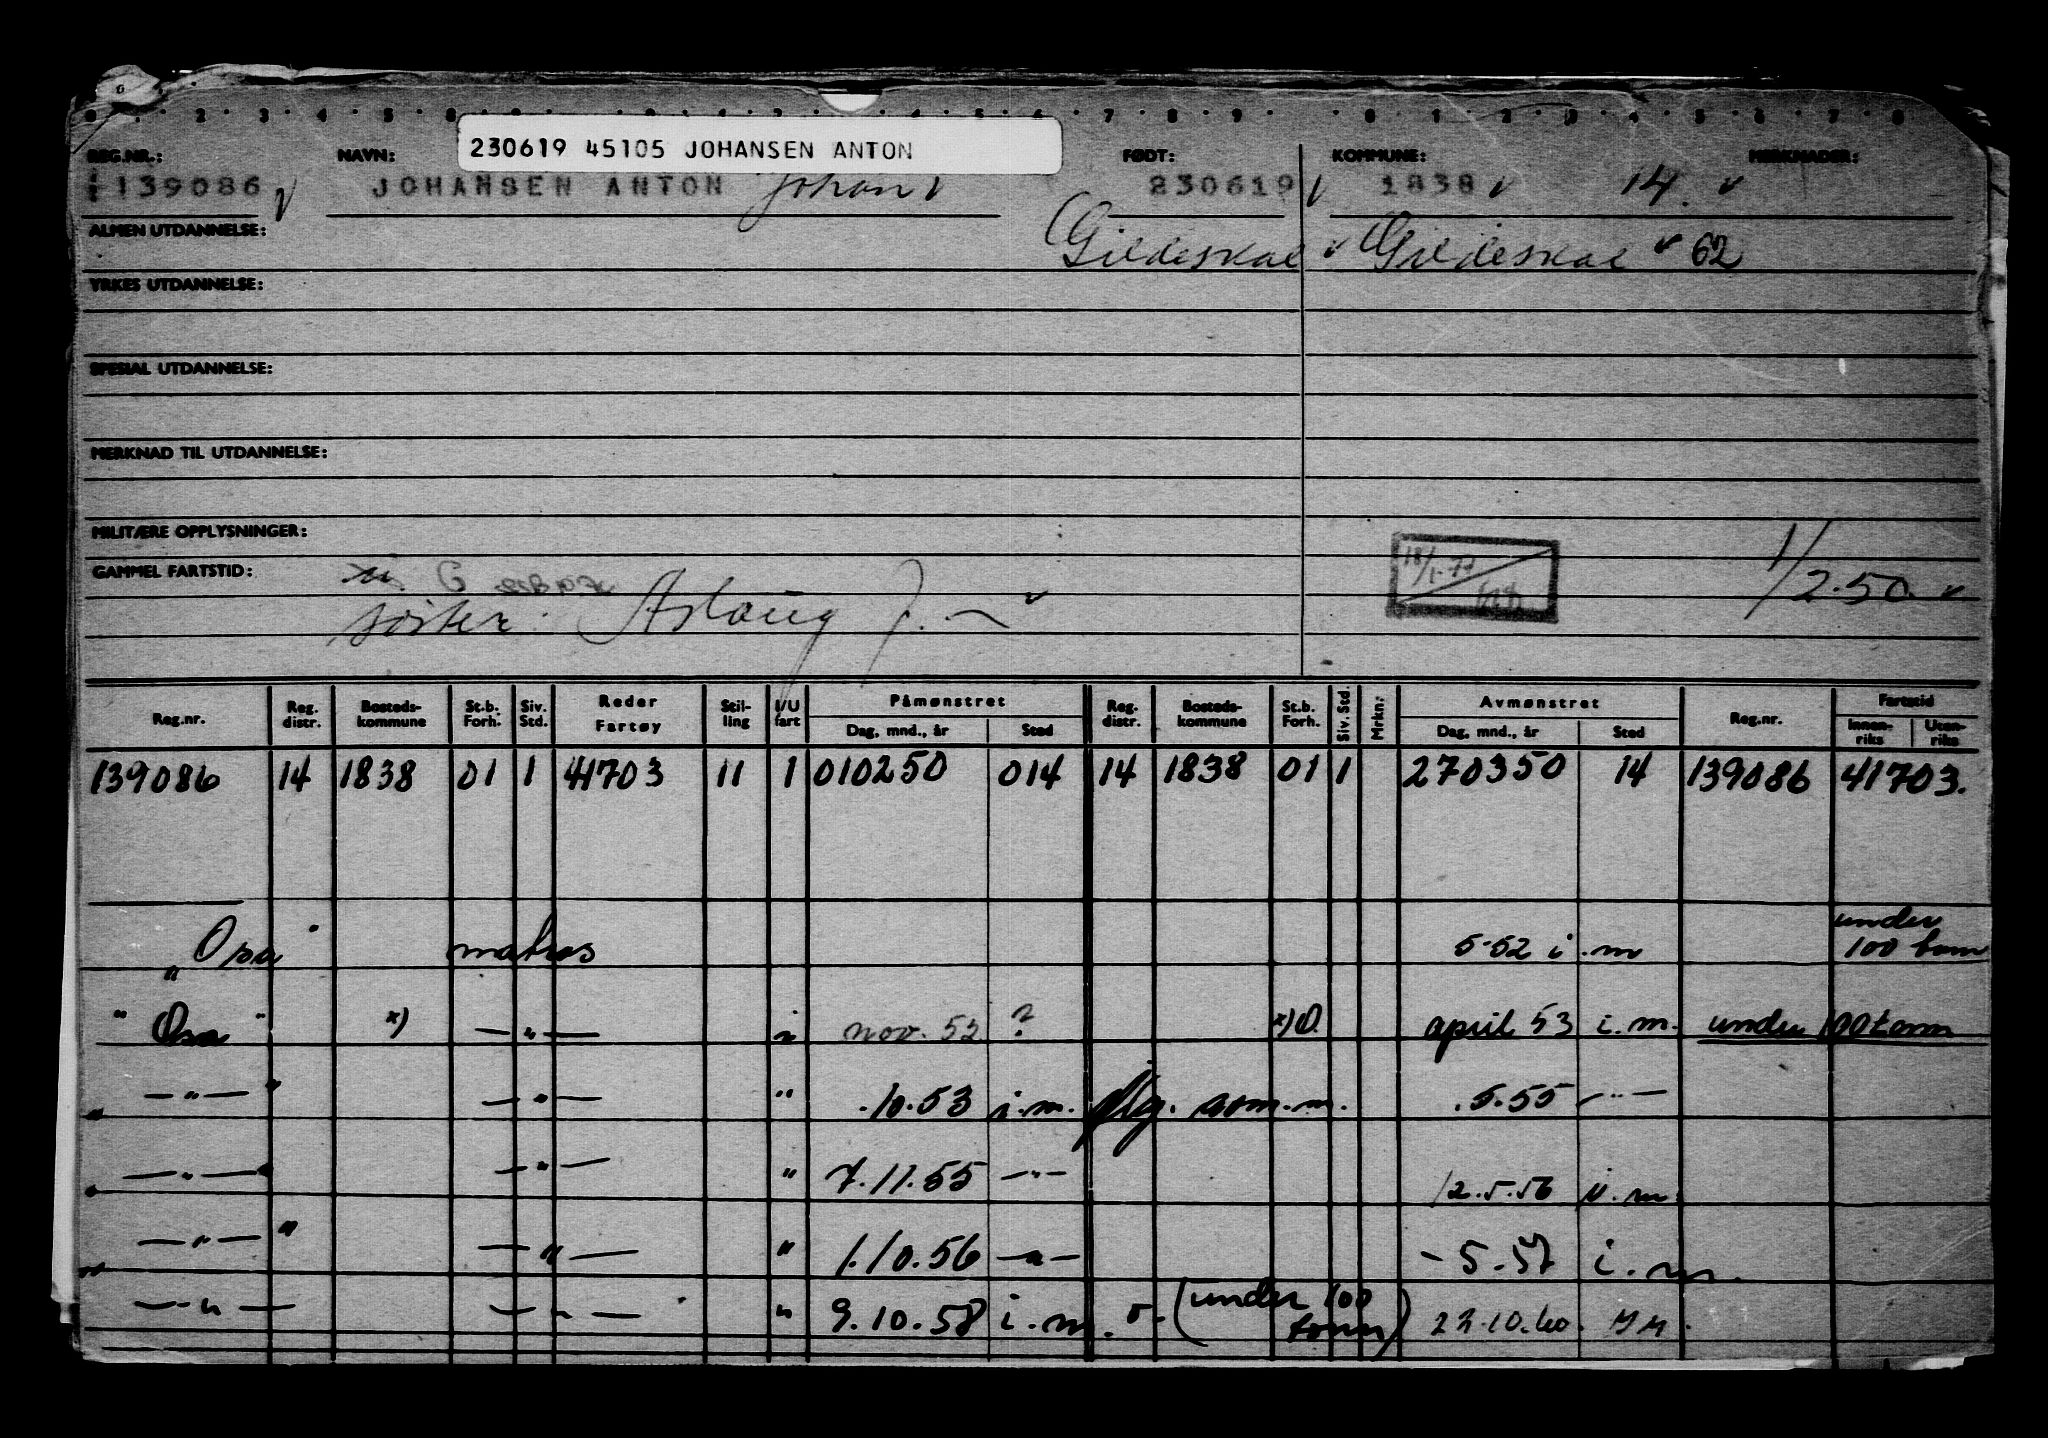 230619 45105 JOHANSEN ANTON
REG.NR.: NAVN: FØDT: KOMMUNE: MERKNADER:
139086 JOHANSEN ANTON Johan 230619 1838 14.
ALMEN UTDANNELSE:
Gildeskal Gildeskal 62
YRKES UTDANNELSE:
SPESIAL UTDANNELSE:
MERKNAD TIL UTDANNELSE:
MILITÆRE OPPLYSNINGER:
GAMMEL FARTSTID:
18/1-77
1/2.50
søster: Aslaug J.
Reg.nr. Reg. distr. Bosteds-kommune St.b. Forh. Siv. Std. Reder Fartøy Stil-ling I/U fart Påmønstret Dag, mnd., år Sted Reg. distr. Bosteds-kommune St.b. Forh. Siv. Std. Mrkn: Avmønstret Dag, mnd., år Sted Reg.nr. Fartstid Innen-riks Uten-riks
139086 14 1838 01 1 41703 11 1 010250 014 14 1838 01 1 270350 14 139086 41703.
"Osa" matros 5-52 i.m under 100 tonn
"Osa" x) —"— i nov. 52 ? x) O. april 53 i.m. under 100 tonn
—"— —"— " .10.53 i.m. .5.55 —"—
—"— —"— " 7.11.55 —"— 12.5.56 i.m.
—"— —"— " 1.10.56 —"— - 5.57 i.m.
—"— —"— " 9.10.58 i.m. (under 100 tonn) 22.10.60.